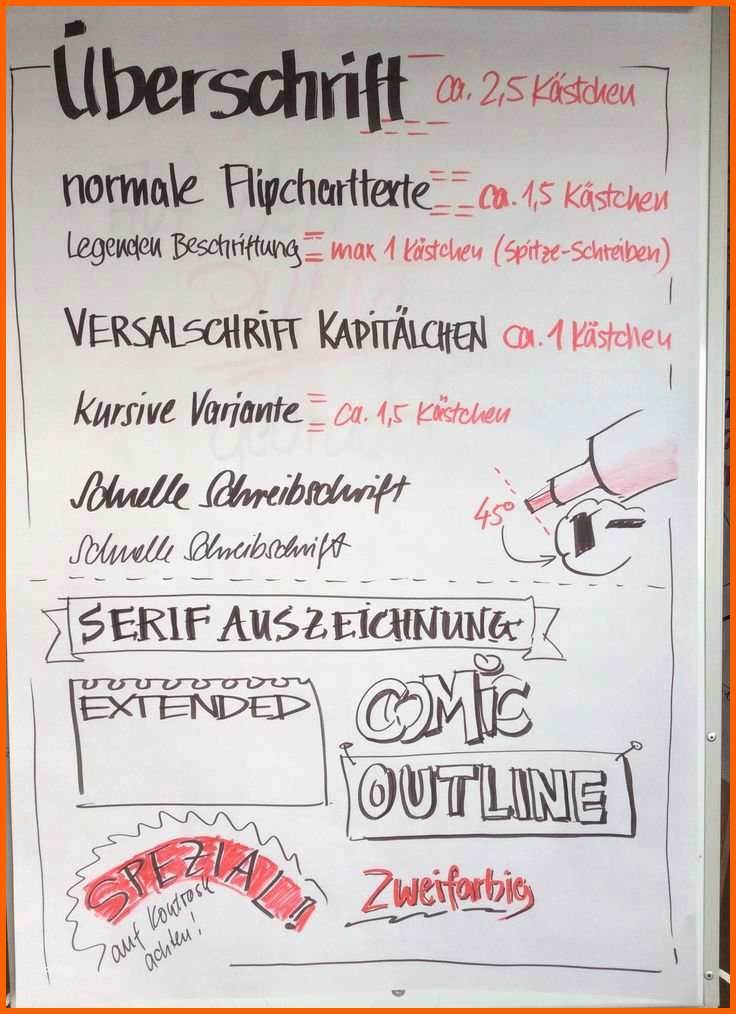 Überschrift ca. 2,5 Kästchen
normale Flipcharttexte ca. 1,5 Kästchen
Legenden Beschriftung = max 1 Kästchen (Spitze-Schreiben)
VERSALSCHRIFT KAPITÄLCHEN ca. 1 Kästchen
kursive Variante ca. 1,5 Kästchen
Schnelle Schreibschrift
45°
Schnelle Schreibschrift
SERIF AUSZEICHNUNG
EXTENDED
COMiC
OUTLINE
SPEZIAL!!
auf Kontrast
achten!
Zweifarbig